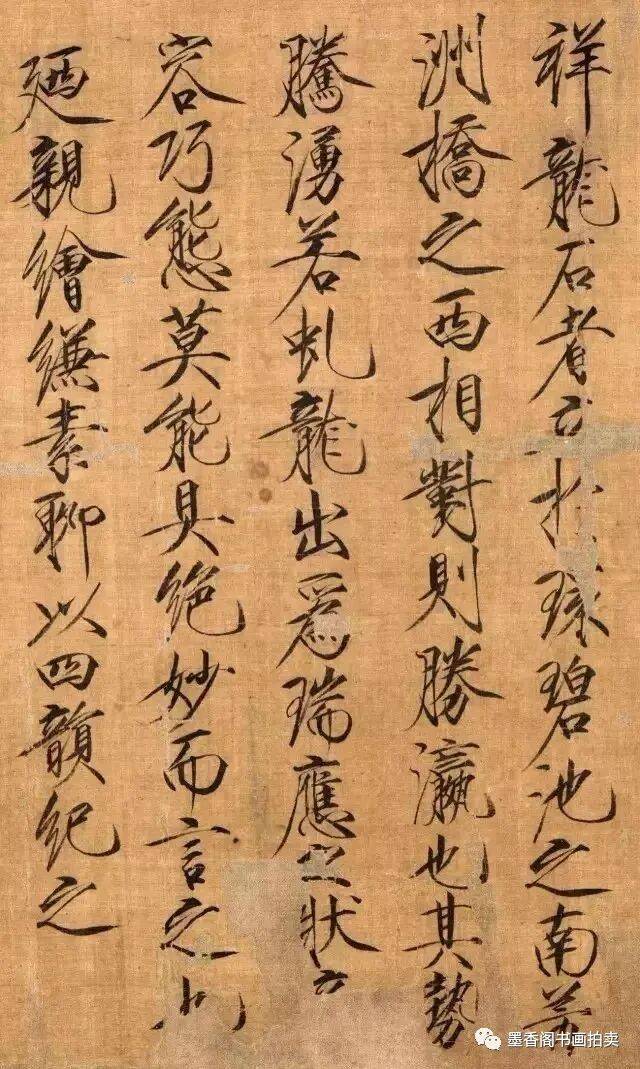 祥龍石者立於環碧池之南芳
洲橋之西相對則勝瀛也其勢
騰湧若虬龍出爲瑞應之狀奇
容巧態莫能具絶妙而言之也
廼親繪縑素聊以四韻紀之
墨香阁书画拍卖